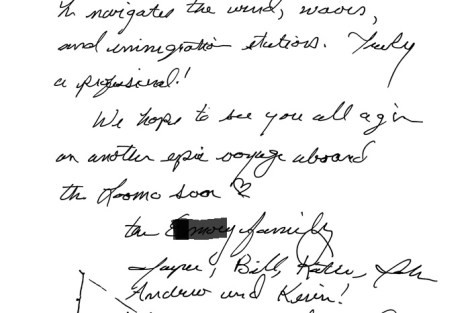 navigates the wind, waves,
and immigration stations. Truly
a professional!
We hope to see you all agin
on another epic voyage aboard
the soon
the family
Bill,
Andrew and Kevin!